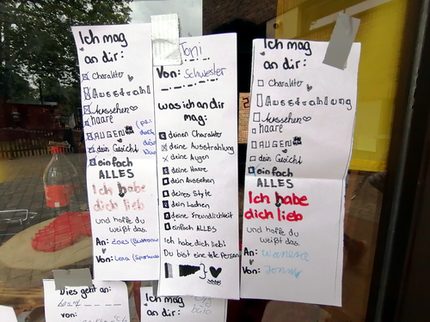 Ich mag
an dir:
Charakter
Ausstrahlung
Aussehen
haare
AUGEN
dein Gesicht
einfach
ALLES
Ich habe
dich lieb
und hoffe du
weißt das.
An:
Von: Lena
Toni
Von: Schwester
was ich an dir
mag:
deinen Charakter
deine Ausstrahlung
deine Augen
deine Haare
dein Aussehen
deines Style
dein Lachen
deine Freundlichkeit
einfach ALLES
Ich habe dich lieb!
Du bist eine tolle Person
Ich mag
an dir:
Charakter
Ausstrahlung
Aussehen
haare
AUGEN
dein Gesicht
einfach
ALLES
Ich habe
dich lieb
und hoffe du
weißt das.
An:
Von: Jonas
Dies geht an:
von:
Ich mag
an dir: